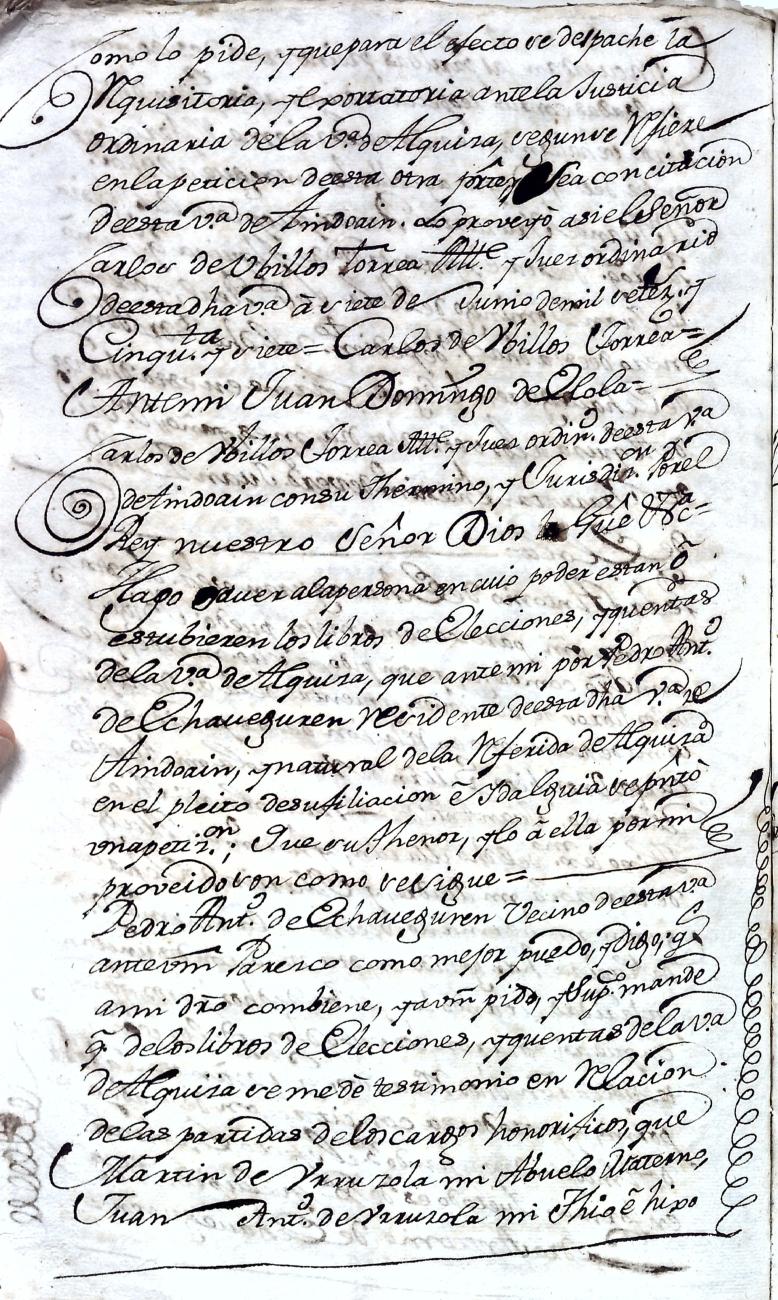 Como lo pide, y que para el efecto se despache la
Rquisitoria, y exportatoria ante la Justicia
ordinaria de la va. de Alquiza, segun se Rfiere
en la peticion de esta otra pte. y sea con citacion
de esta va. de Aindoain. Lo proveyò asi el Señor
Carlos de Vbillos Torrea Alle. y Juez ordinario
de esta dha va. à siete de Junio de mil setezs. y
Cinqta. y siete = Carlos de Vbillos Torrea =
Ante mi Juan Domingo de Elola =
Carlos de Vbillos Torrea Alle. y Juez ordino. de esta va.
de Aindoain con su Thermino, y Jurisdion. por el
Rey nuestro Señor Dios le Gûe &ca =
Hago saver ala persona en cuio poder estan ô
estubieren los libros de Elecciones, y quentas
de la va. de Alquiza, que ante mi por Pedro Anto.
de Echaveguren Residente de esta dha va. de
Aindoain, y natural dela Rferida de Alquiza
en el pleito de su filiacion ê Idalguia se pntò
vna petizon.; Que su Thenor, y lo â ella por mi
proveido son como se sigue =
Pedro Anto. de Echaveguren Vecino de esta va
ante vm Paresco como mejor puedo, y Digo, q̃
a mi dro combiene, y a vm pido, y supco. mande
q̃. de los libros de Elecciones, y quentas de la va
de Alquiza se me dè testimonio en Relacion
delas partidas de los cargos honorificos, que
Martin de Vrruzola mi Abuelo Materno,
Juan Anto. de Vrruzola mi Thio ê hixo